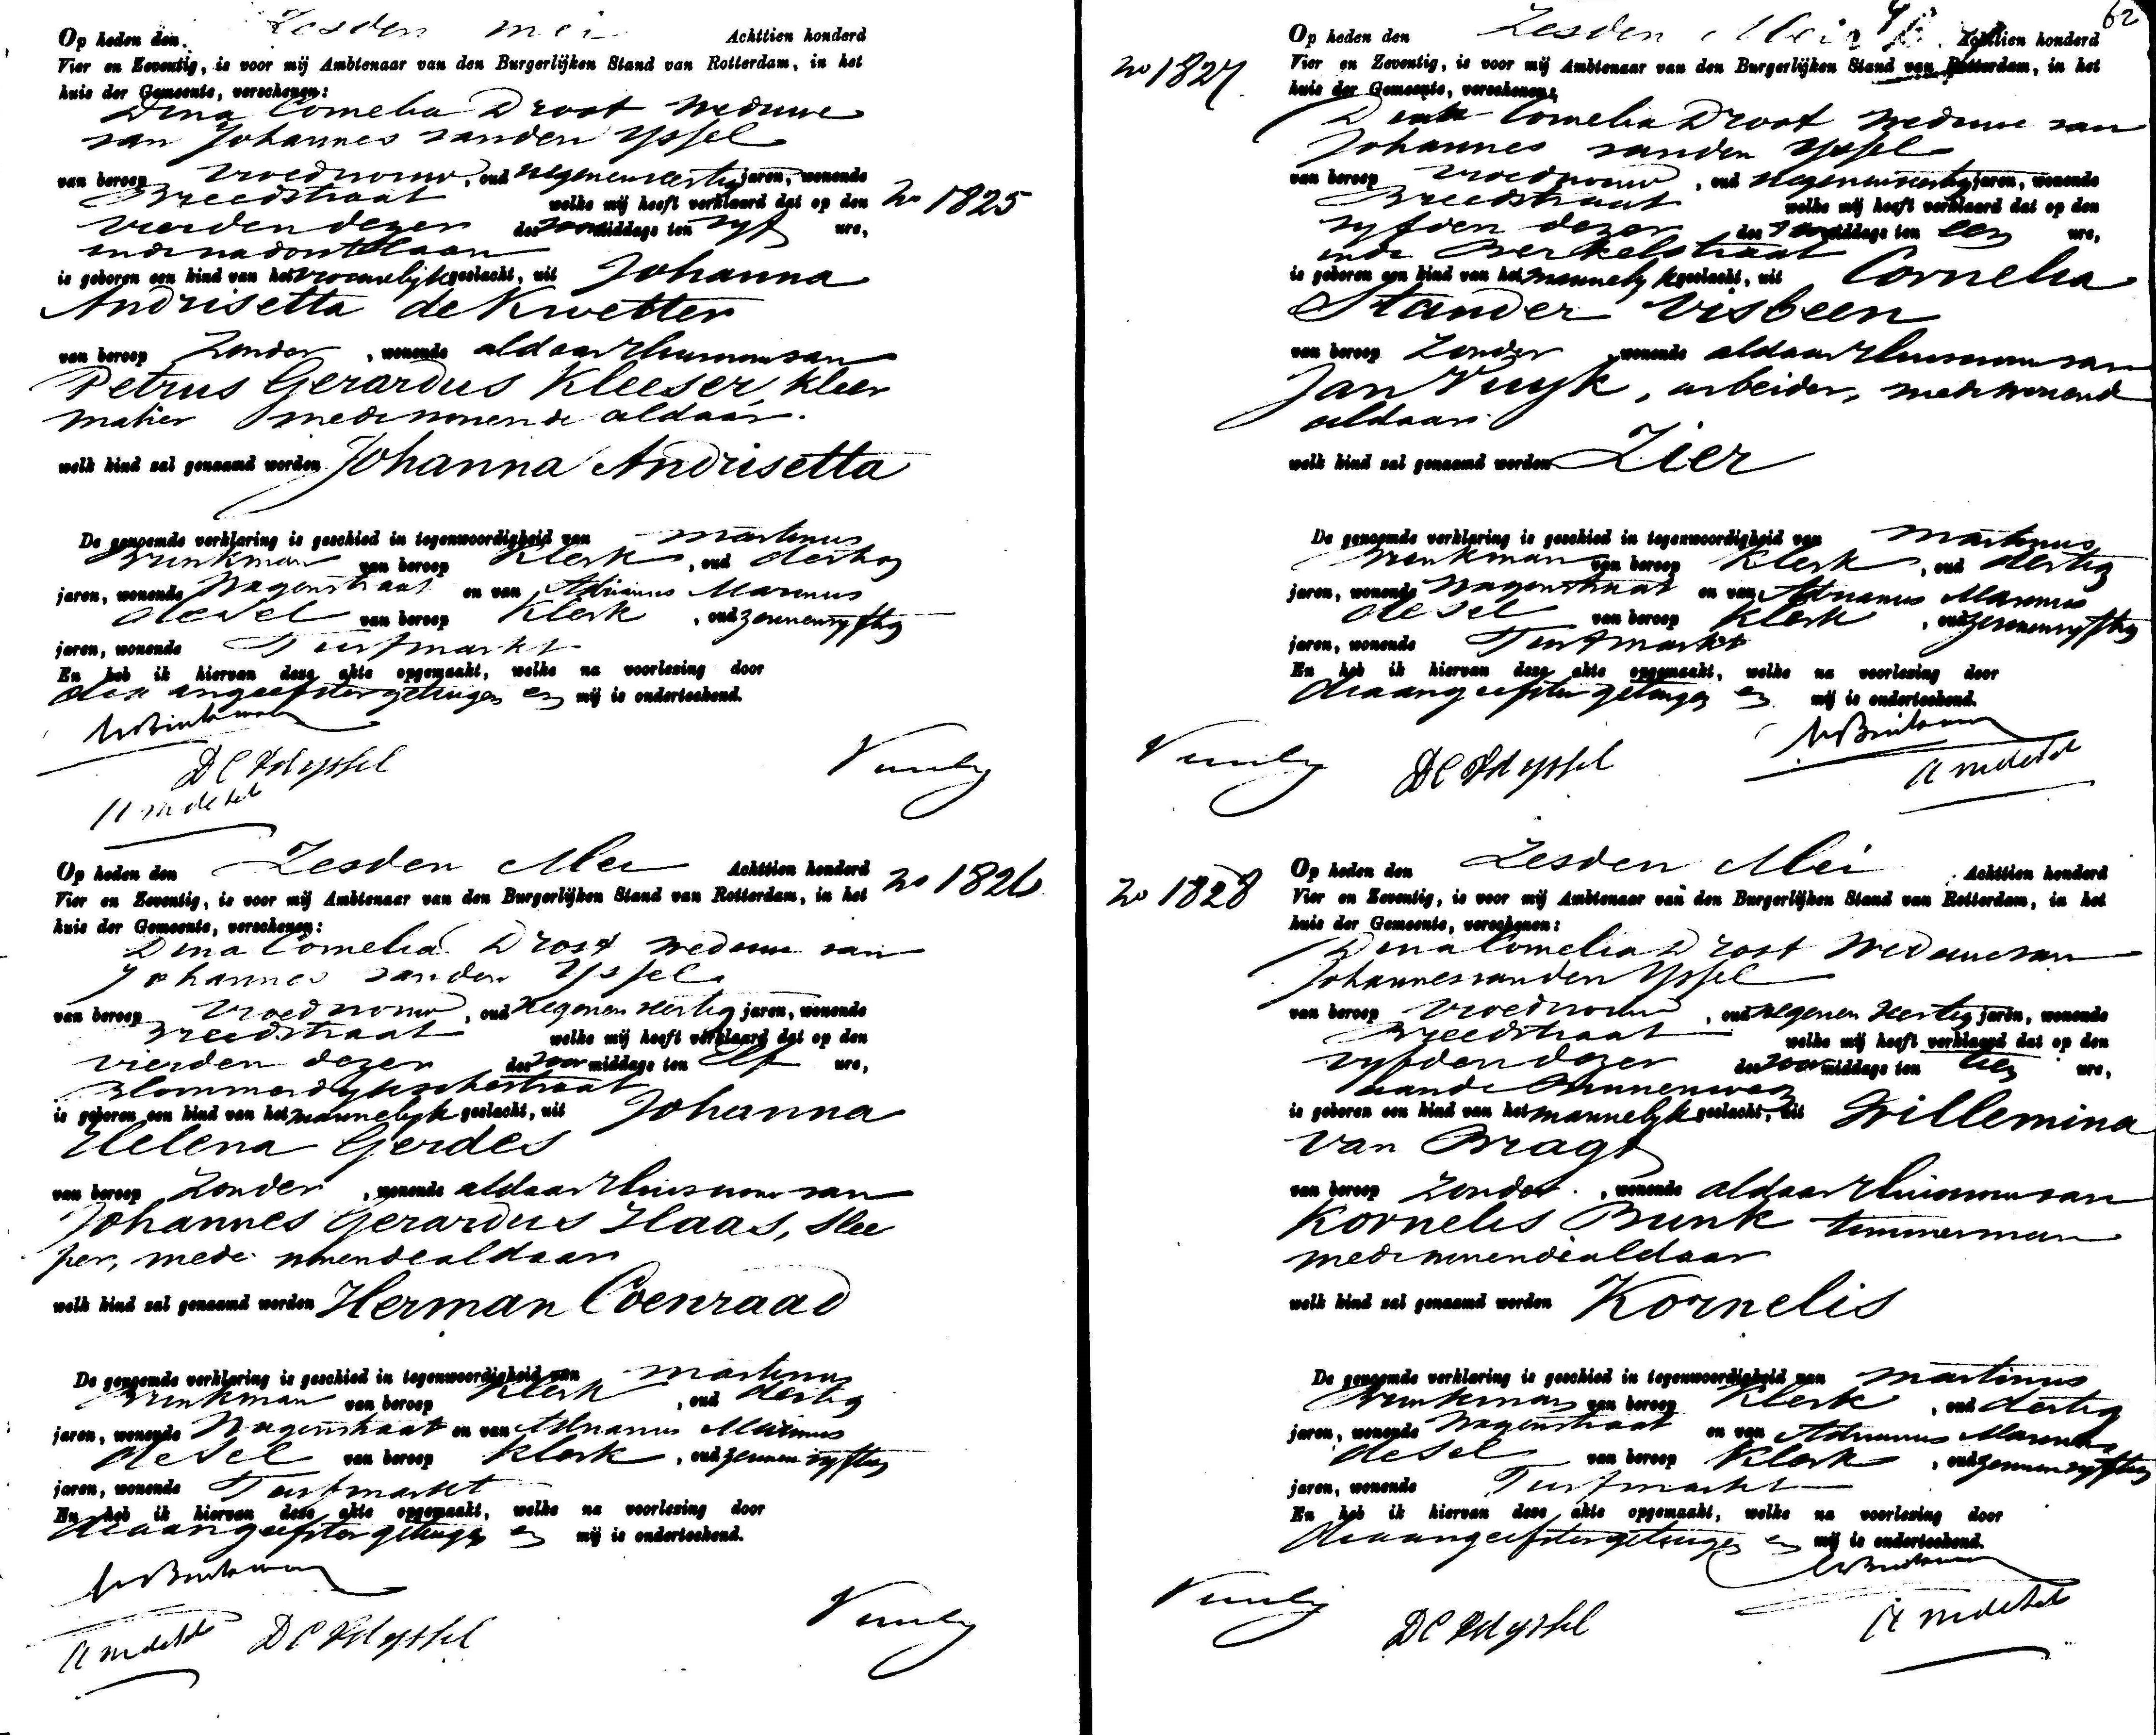 Op heden den Zesden mei Achttien honderd
Vier en Zeventig, is voor mij Ambtenaar van den Burgerlijken Stand van Rotterdam, in het
huis der Gemeente, verschenen:
Dina Cornelia Droost weduwe
van Johannes vanden Yssel
van beroep vroedvrouw, oud negenenveertig jaren, wonende
Breedstraat welke mij heeft verklaard dat op den No 1825
vierden dezer des voormiddags ten vyf ure,
is geboren een kind van het vrouwelijk geslacht, uit Johanna
Andrisetta de Kwetter
van beroep Zonder, wonende aldaar huisvrouw van
Petrus Gerardus Kleeser, kleer
maker medewonende aldaar.
welk kind zal genaamd worden Johanna Andrisetta
De genoemde verklaring is geschied in tegenwoordigheid van Martinus
Brinkman van beroep Klerk, oud dertig
jaren, wonende Wagenstraat en van Adrianus Marinus
de Sel van beroep Klerk, oud zevenenvyftig
jaren, wonende Turfmarkt
En heb ik hiervan deze akte opgemaakt, welke na voorlezing door
de aangeefster getuigen en mij is onderteekend.
MBrinkman
DC vd yssel
A M de Sel
Op heden den Zesden Mei Achttien honderd No 1826
Vier en Zeventig, is voor mij Ambtenaar van den Burgerlijken Stand van Rotterdam, in het
huis der Gemeente, verschenen:
Dina Cornelia Drost weduwe van
Johannes vanden Yssel
van beroep vroedvrouw, oud negenenveertig jaren, wonende
Breedstraat welke mij heeft verklaard dat op den
vierden dezer des voormiddags ten Elf ure,
Blommerdykschestraat
is geboren een kind van het mannelyk geslacht, uit Johanna
Helena Gerdes
van beroep Zonder, wonende aldaar huisvrouw van
Johannes Gerardus Haas, slee
per, mede wonende aldaar
welk kind zal genaamd worden Herman Coenraad
De genoemde verklaring is geschied in tegenwoordigheid van Martinus
Brinkman van beroep Klerk, oud dertig
jaren, wonende Wagenstraat en van Adrianus Marinus
de Sel van beroep Klerk, oud zevenenvyftig
jaren, wonende Turfmarkt
En heb ik hiervan deze akte opgemaakt, welke na voorlezing door
de aangeefster getuigen en mij is onderteekend.
MBrinkman
A M de Sel DC vd yssel
62
Op heden den Zesden Mei Achttien honderd
No 1827. Vier en Zeventig, is voor mij Ambtenaar van den Burgerlijken Stand van Rotterdam, in het
huis der Gemeente, verschenen:
Dina Cornelia Droost weduwe van
Johannes vanden Yssel
van beroep vroedvrouw, oud negenenveertig jaren, wonende
Breedstraat welke mij heeft verklaard dat op den
vyfden dezer des voormiddags ten een ure,
inde Berkelstraat
is geboren een kind van het mannelyk geslacht, uit Cornelia
Stander Visbeen
van beroep Zonder wonende aldaar huisvrouw van
Jan Vuyk, arbeider, medewonend
aldaar
welk kind zal genaamd worden Zier
De genoemde verklaring is geschied in tegenwoordigheid van Martinus
Brinkman van beroep Klerk, oud dertig
jaren, wonende Wagenstraat en van Adrianus Marinus
de Sel van beroep Klerk, oud zevenenvyftig
jaren, wonende Turfmarkt
En heb ik hiervan deze akte opgemaakt, welke na voorlezing door
de aangeefster getuigen en mij is onderteekend.
MBrinkman
DC vd yssel A M de Sel
Op heden den Zesden Mei Achttien honderd
No 1828 Vier en Zeventig, is voor mij Ambtenaar van den Burgerlijken Stand van Rotterdam, in het
huis der Gemeente, verschenen:
Dina Cornelia Drost weduwe van
Johannes vanden Yssel
van beroep vroedvrouw, oud negenenveertig jaren, wonende
Breedstraat welke mij heeft verklaard dat op den
vyfden dezer des voormiddags ten tien ure,
aande Binnenweg
is geboren een kind van het mannelyk geslacht, uit Willemina
van Bragt
van beroep Zonder, wonende aldaar huisvrouw van
Kornelis Bunk timmerman
medewonende aldaar
welk kind zal genaamd worden Kornelis
De genoemde verklaring is geschied in tegenwoordigheid van Martinus
Brinkman van beroep Klerk, oud dertig
jaren, wonende Wagenstraat en van Adrianus Marinus
de Sel van beroep Klerk, oud zevenenvyftig
jaren, wonende Turfmarkt
En heb ik hiervan deze akte opgemaakt, welke na voorlezing door
de aangeefster getuigen en mij is onderteekend.
MBrinkman
DC vd yssel A M de Sel